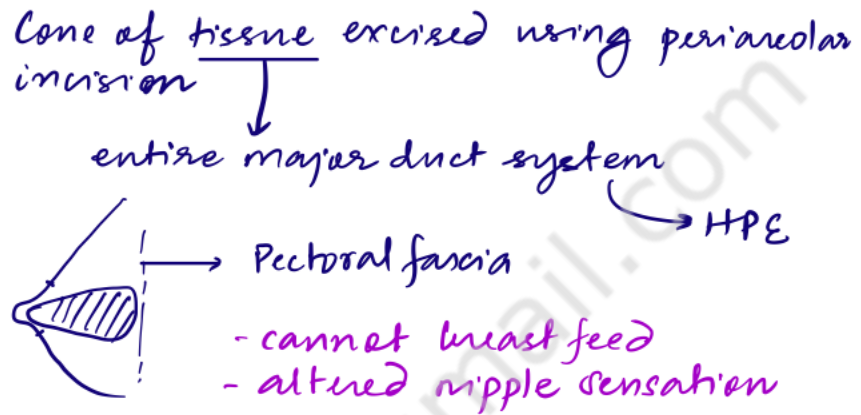 Cone of tissue excised using periareolar
incision
entire major duct system
HPE
Pectoral fascia
- cannot breast feed
- altered nipple sensation
mail.com